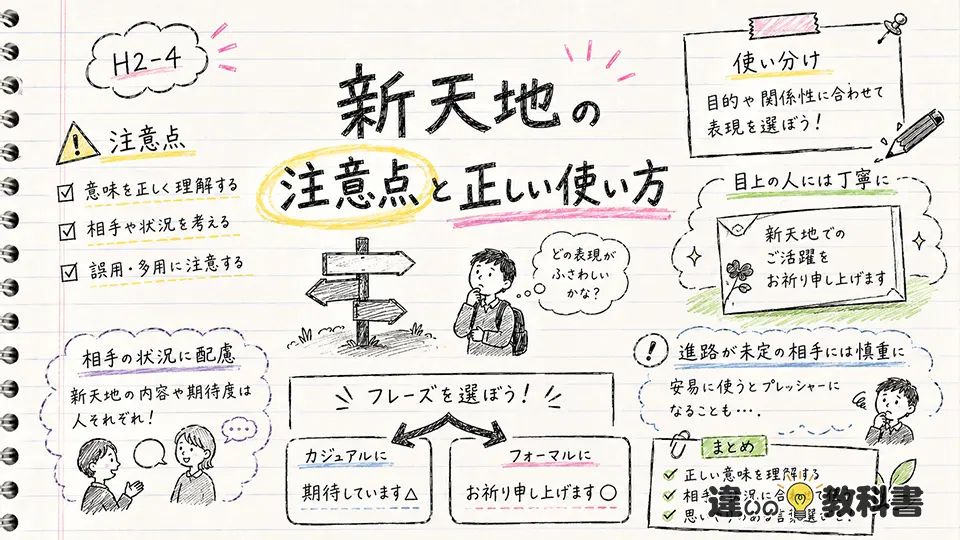 H2-4
新天地の
注意点と正しい使い方
注意点
意味を正しく理解する
相手や状況を考える
誤用・多用に注意する
使い分け
目的や関係性に合わせて
表現を選ぼう！
目上の人には丁寧に
新天地での
ご活躍を
お祈り申し上げます
どの表現が
ふさわしい
かな？
相手の状況に配慮
新天地の内容や期待度は
人それぞれ！
フレーズを選ぼう！
カジュアルに
期待しています△
フォーマルに
お祈り申し上げます○
進路が未定の相手には慎重に
安易に使うとプレッシャーに
なることも…．
まとめ
正しい意味を理解する
相手
況に合
思い
違いの教科書